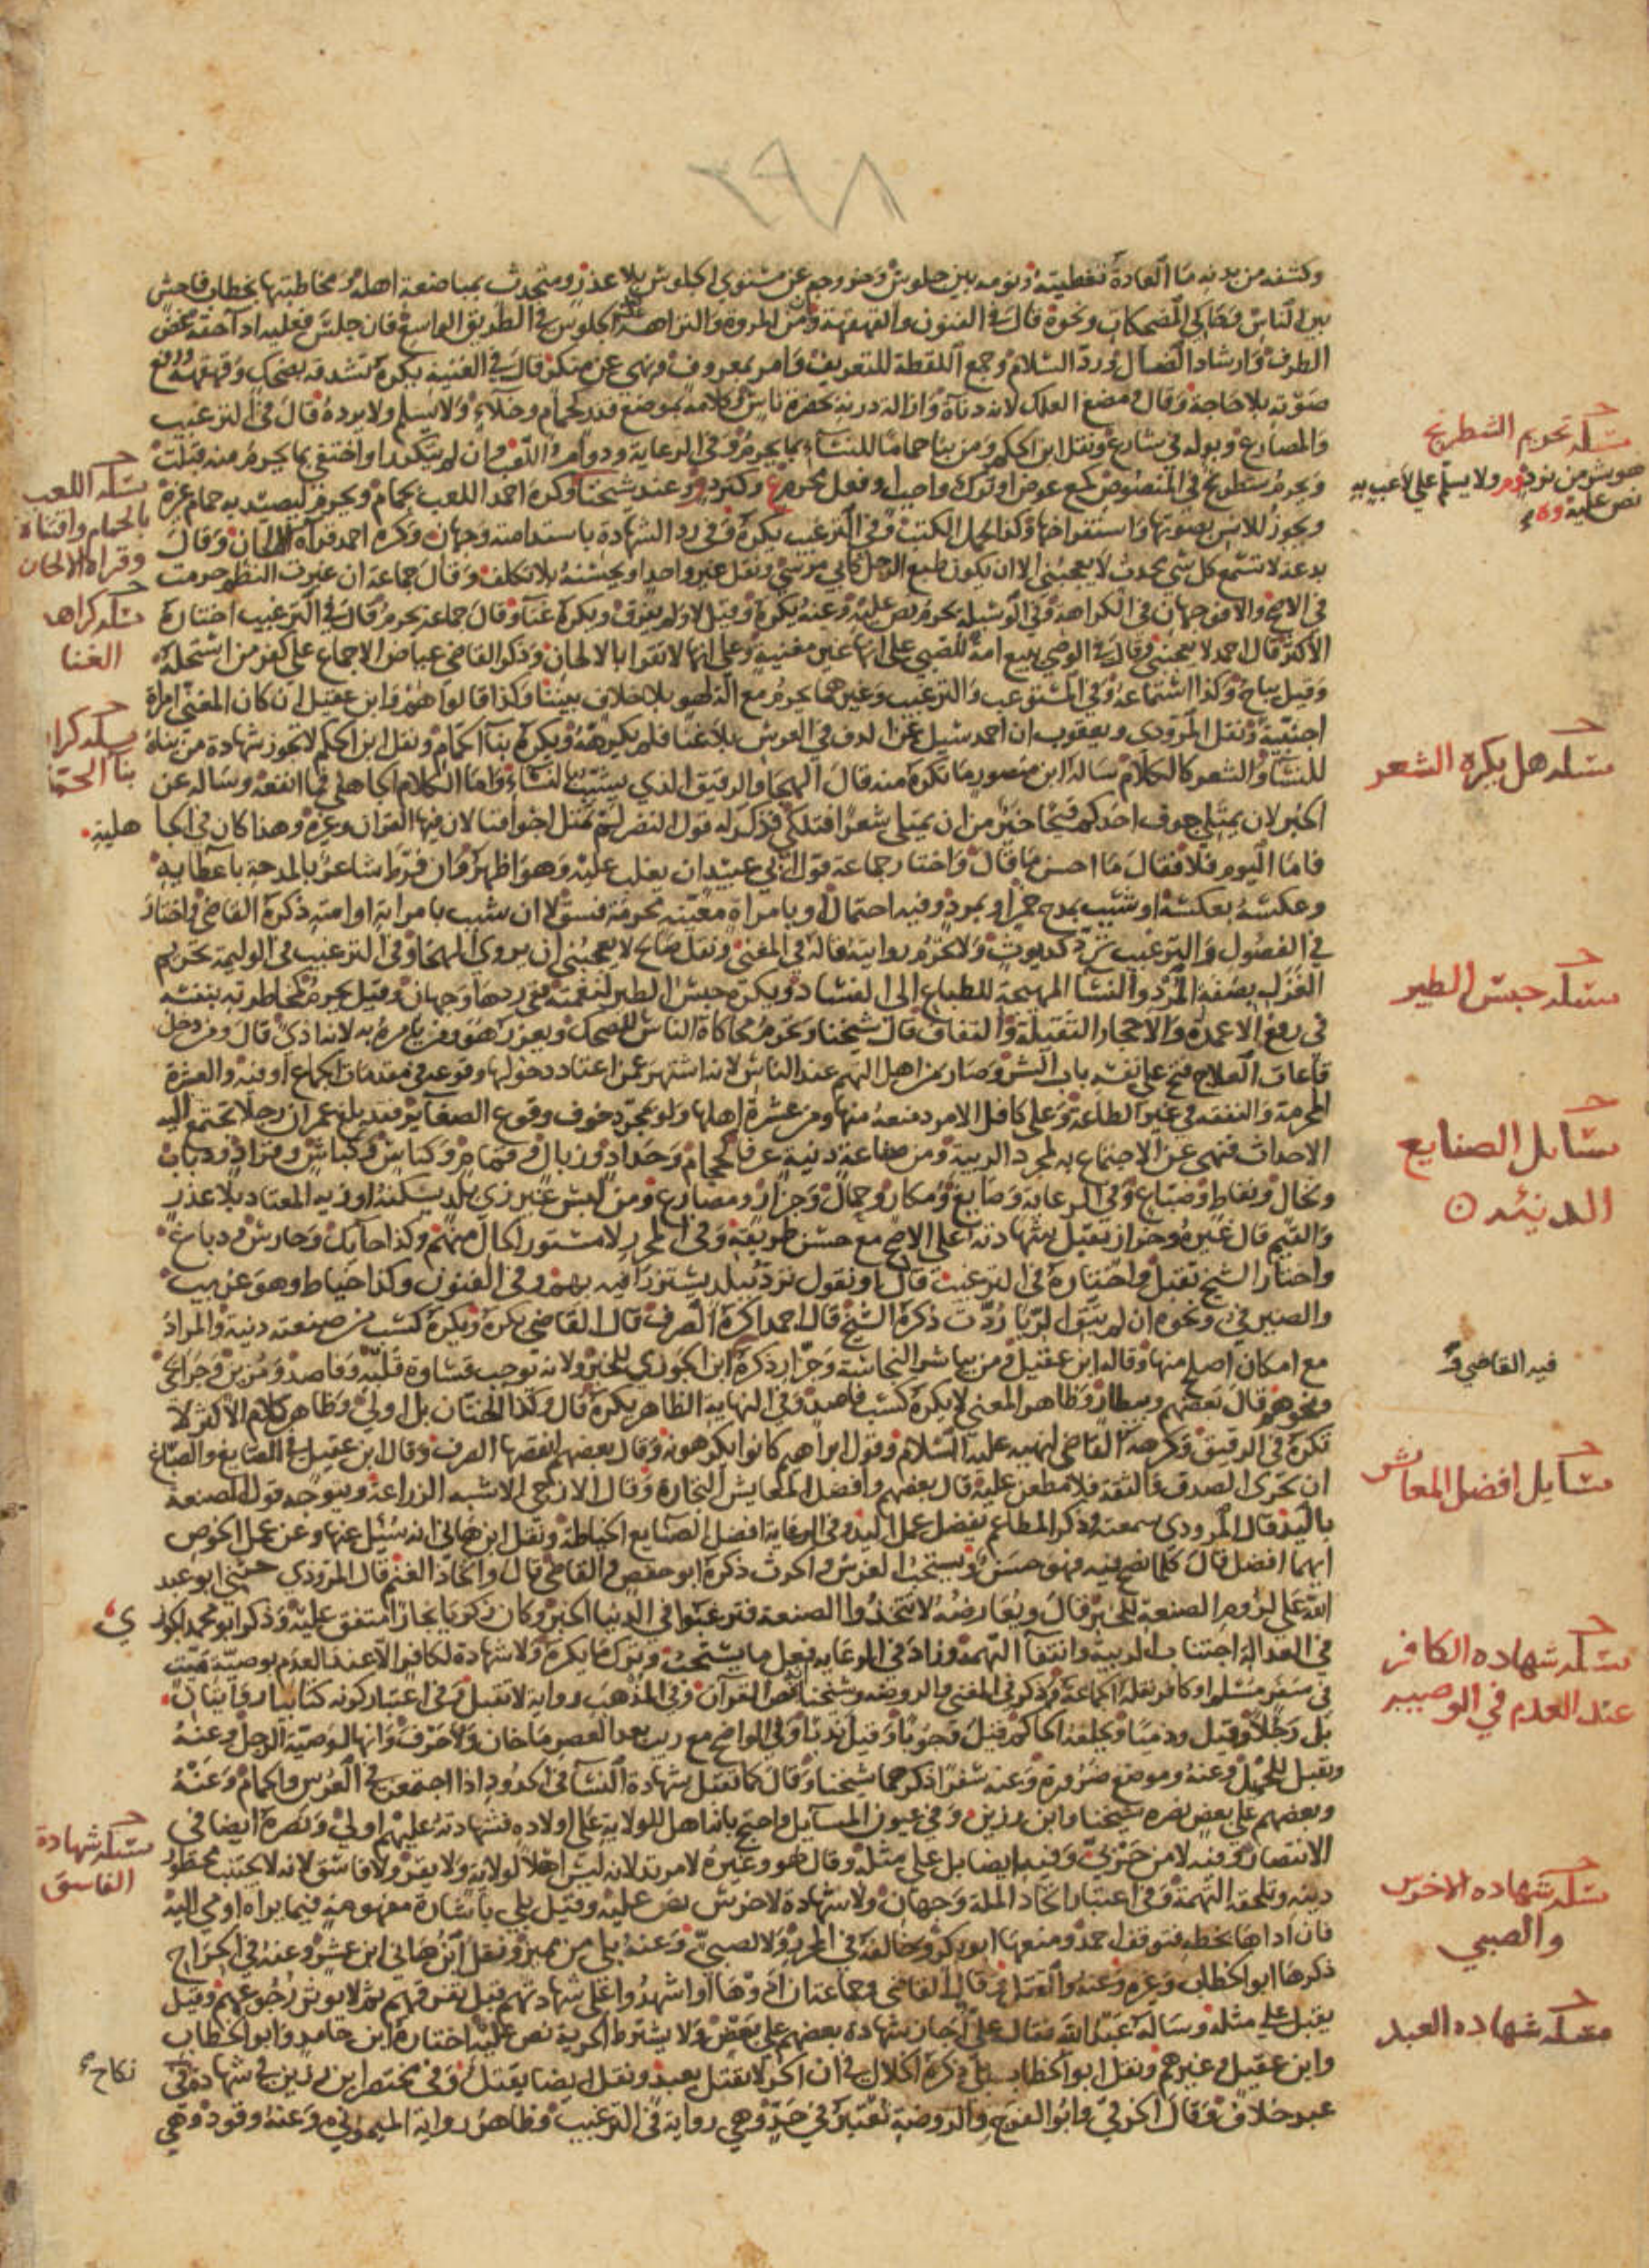 ٢٩٨
وكشفه من بدنه ما العادة تغطيته ونومه بين جلوس وخروجه عن مستوى الجلوس بلا عذر ومتحدث بمباضعة اهله ومخاطبتها بخطاب فاحش
بين الناس وحاكي المضحكات ونحوه قال في الفنون والقهقهة ومن المروة والنزاهة الجلوس في الطريق الواسع فان جلس فعليه ادا حقه غض
الطرف وارشاد الضال ورد السلام وجمع اللقطة للتعريف وامر بمعروف ونهي عن منكر قال في الغنية يكره تشدقه بضحك وقهقهه ورفع
صوته بلا حاجة وقال ومضغ العلك لانه دناة وازالة درنه بحضرة ناس وكلامه بموضع قذر كحمام وخلاء ولا يسلم ولا يرده قال في الترغيب
والمصارع وبوله في شارع ونقل ابن الحكم ومن بنا حماما للنساء بما يحرم وفي الرعاية ودوام اللعب وان لم يتكرر او اختفى بما يحرم منه قبلت
ويحرم شطرنج في المنصوص كمع عوض او ترك واجب او فعل محرم وكنرد وعند شيخنا وكره احمد اللعب بحمام ويحرم ليصيد به حمام غيره
ويجوز للانس بصوتها واستفراخها وكذا لحمل الكتب وفي الترغيب يكره وفي رد الشهادة باستدامته وجهان وكره احمد قراة الالحان وقال
بدعة لا تسمع كل شي محدث لا يعجبني الا ان يكون طبع الرجل كابي موسى ونقل غير واحد او يحسنه بلا تكلف وقال جماعة ان غيرت النظم حرمت
في الاصح والا فوجهان في الكراهة وفي الوسيلة يحرم نص عليه وعنه يكره وقيل لا ولم يفرق ويكره غنا وقال جماعة يحرم قال في الترغيب اختاره
الاكثر قال احمد لا يعجبني وقال في الوصي يبيع امة للصبي على انها غير مغنية وعلى انها لا تقرا بالالحان وذكر القاضي عياض الاجماع على كفر من استحله
وقيل يباح وكذا استماعه وفي المستوعب والترغيب وغيرهما يحرم مع الة لهو بلا خلاف بيننا وكذا قالوا هم وابن عقيل ان كان المغني امراة
اجنبية ونقل المروذي ويعقوب ان احمد سئل عن الدف في العرس بلا غنا فلم يكرهه ويكره بنا الحمام ونقل ابن الحكم لا تجوز شهادة من بناه
للنسا والشعر كالكلام ساله ابن منصور ما يكره منه قال الهجا والرقيق الذي يشبب بالنساء واما الكلام الجاهلي فما انفعه وساله عن
الخبر لان يمتلي جوف احدكم قيحا خير من ان يمتلي شعرا فتلكي فذكر له قول النضر لم تمتل اجوافنا لان فيها القران وغيره وهذا كان في الجا هلية
فاما اليوم فلا فقال ما احسن ما قال واختار جماعة قول ابي عبيد ان يغلب عليه وهو اظهر وان فرط شاعر بالمدحة باعطايه
وعكسه بعكسه او شبب بمدح خمر او بمرد وفيه احتمال او بامراة معينة محرمة فسق لا ان شبب بامراته او امته ذكره القاضي واختار
في الفصول والترغيب ترد كديوث ولا تحرم روايته قاله في المغني ونقل صالح لا يعجبني ان يروي الهجا وفي الترغيب في الوليمة تحريم
الغزل بصفة المرد والنسا المهيجة للطباع الى الفساد ويكره حبس الطير لنغمته ففي ردها وجهان وقيل يحرم كمخاطرته بنفسه
في رفع الاعمدة والاحجار الثقيلة والثقاف قال شيخنا وتحرم محاكاة الناس للضحك ويعزر هو ومن يامره به لانه اذى قال ومن دخل
قاعات العلاج فتح على نفسه باب الشر وصار من اهل التهم عند الناس لانه اشتهر عمن اعتاد دخولها وقوعه في مقدمات الجماع او فيه والعشرة
المحرمة والنفقة في غير الطاعة وعلى كافل الامرد منعه منها ومن عشرة اهلها ولو بمجرد خوف وقوع الصغاير فقد بلغ عمر ان رجلا تجتمع اليه
الاحداث فنهى عن الاجتماع به لمجرد الريبة ومن صناعة دنية عرفا كحجام وحداد وزبال وقمام وكناس وكباش وقراد ودباب
ونخال ونفاط وصباغ وفي الرعاية وصايغ ومكار وجمال وجزار ومصارع ومن لبس غير زي بلد يسكنه او زيه المعتاد بلا عذر
والقيم قال غيره وجزار تقبل شهادته على الاصح مع حسن طريقة وفي المحرر لا مستور الحال منهم وكذا حايك وحارس ودباغ
واختار الشيخ تقبل واختاره في الترغيب قال او نقول ترد ببلد يستزرا فيه بهم وفي الفنون وكذا خياط وهو غريب
والصيرفي ونحوه ان لم يتق الربا ردت ذكره الشيخ قال احمد اكره الصرف قال القاضي يكره ويكره كسب من صنعته دنية والمراد
مع امكان اصلح منها وقاله ابن عقيل ومن يباشر النجاسة وجزار ذكره ابن الجوزي للخبر ولانه توجب قساوة قلبه وفاصد ومزين وجرايحي
ونحوهم قال بعضهم وبيطار وظاهر المغني لا يكره كسب فاصد وفي النهاية الظاهر يكره قال وكذا الختان بل اولى وظاهر كلام الاكثر لا
تكره في الرقيق وكرهه القاضي لنهيه عليه السلام وقول ابراهيم كانوا يكرهونه وقال بعضهم انقصها الصرف وقال ابن عقيل في الصايغ والصباغ
ان تحرى الصدق والثقة فلا مطعن عليه قال بعضهم وافضل المعايش التجارة وقال الازجي الاشبه الزراعة ويتوجه قول الصنعة
باليد قال المروذي سمعته وذكر المطاعم يفضل عمل اليد وفي الرعاية افضل الصنايع الخياطة ونقل ابن هاني انه سئل عنها وعن عمل الخوص
ايهما افضل قال كلما نصح فيه فهو حسن ويستحب الغرس والحرث ذكره ابو حفص والقاضي قال واتخاذ الغنم قال المروذي حثني ابو عبد
الله على لزوم الصنعة للخبر قال ويعارضه لا تتخذوا الصنعة فترغبوا في الدنيا الخبر وكان زكريا نجارا متفق عليه وذكر ابو محمد الجوز ي
في العدالة اجتناب الريبة وانتفا التهمة وزاد في الرعاية فعل ما يستحب وترك ما يكره ولا شهادة لكافر الا عند العدم بوصية ميت
في سفر مسلم او كافر نقله الجماعة وذكر في المغني والروضة وشيخنا نص القران وفي المذهب رواية لا تقبل وفي اعتبار كونه كتابيا روايتان
بل رجلا وقيل وذميا ويحلفه الحاكم قيل وجوبا وقيل ندبا وفي الواضح مع ريب بعد العصر ما خان ولا حرف وانها لوصية الرجل وعنه
وتقبل للحميل وعنه وموضع ضرورة وعنه سفرا ذكرهما شيخنا وقال كما تقبل شهادة النسا في الحدود اذا اجتمعن في العرس والحمام وعنه
وبعضهم على بعض نصره شيخنا وابن رزين وفي عيون المسايل واحتج بانه اهل للولاية على اولاده فشهادته عليهم اولى ونصره ايضا في
الانتصار وفيه لا من حربي وفيه ايضا بل على مثله وقال هو وغيره لا مرتد لانه ليس اهلا لولاية ولا يقر ولا فاسق لانه لا يجتنب محظور
دينه وتلحقه التهمة وفي اعتبار اتحاد الملة وجهان ولا شهادة لاخرس نص عليه وقيل بلى باشارة مفهومة فيما يراه اومي اليه
فان اداها بخطه فتوقف احمد ومنعها ابو بكر وخالفه في المحرر ولا لصبي وعنه بلى من مميز ونقل ابن هاني ابن عشر وعنه في الجراح
ذكرها ابو الخطاب وغيره وعنه والقتل قال القاضي وجماعة ان ادوها او اشهدوا على شهادتهم قبل تفرقهم ثم لا يوثر رجوعهم وقيل
يقبل على مثله وساله عبد الله فقال علي اجاز شهادة بعضهم على بعض ولا يشترط الحرية نص عليه اختاره ابن حامد وابو الخطاب
وابن عقيل وغيرهم ونقل ابو الخطاب بلى وذكره الخلال في ان الحر لا يقتل بعبد ونقل ايضا يقتل وفي مختصر ابن رزين في شهادة في نكاح
عبد خلاف وقال الخرقي وابو الفرج والروضة تعتبر في حد وهي رواية في الترغيب وظاهر رواية الميموني وعنه وقود وهي
مسئلة تحريم الشطرنج
هو شر من نرد ولا يسلم على لاعب به
نص عليه
مسئلة اللعب
بالحمام واقتناه
وقراة الالحان
مسئلة كراهة
الغنا
مسئلة كراهة
بنا الحمام
مسئلة هل يكره الشعر
مسئلة حبس الطير
مسايل الصنايع
الدنيئه
فيه القاضي
مسايل افضل المعاش
مسئلة شهادة الكافر
عند العدم في الوصية
مسئلة شهادة
الفاسق
مسئلة شهادة الاخرس
والصبي
مسئلة شهادة العبد